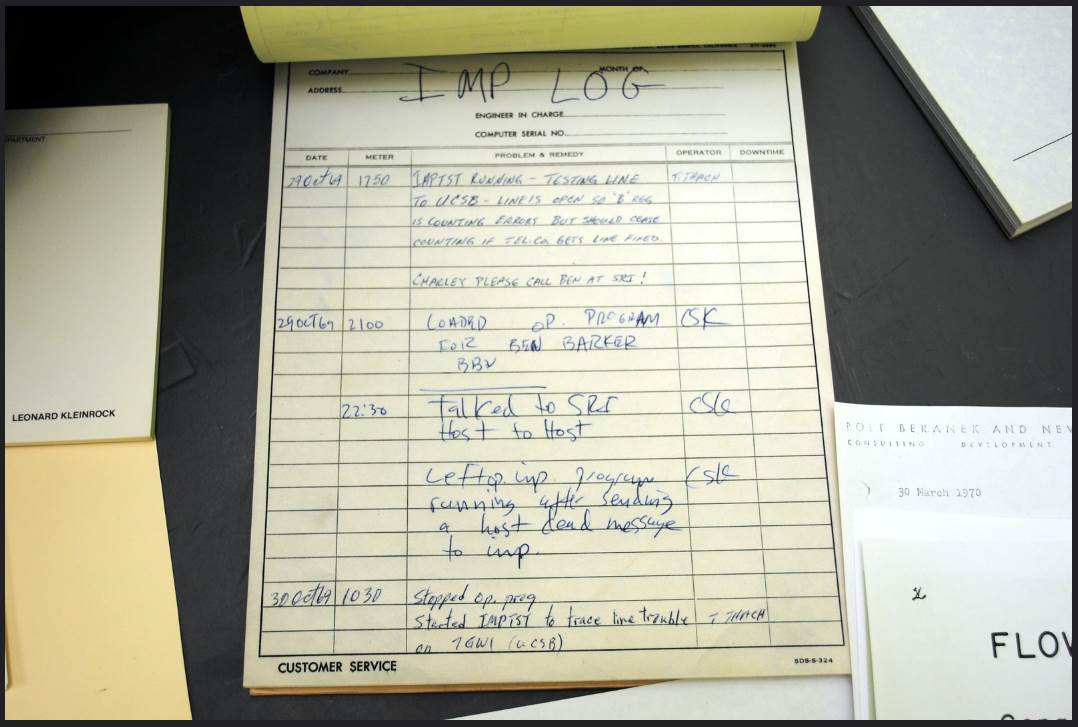 COMPANY MONTH OF
IMP LOG
ADDRESS
ENGINEER IN CHARGE
COMPUTER SERIAL NO.
DATE METER PROBLEM & REMEDY OPERATOR DOWNTIME
29 Oct 69 1750 IMPTST RUNNING - TESTING LINE T. THACH
TO UCSB - LINE IS OPEN SO 'B' REG
IS COUNTING ERRORS BUT SHOULD CEASE
COUNTING IF TEL.CO. GETS LINE FIXED.
CHARLEY PLEASE CALL BEN AT SRI!
29 OCT 69 2100 LOADED OP. PROGRAM CSK
FOR BEN BARKER
BBN
22:30 Talked to SRI CSK
Host to Host
Left op. imp. program CSK
running after sending
a host dead message
to imp.
30 Oct 69 1030 Stopped op. prog
Started IMPTST to trace line trouble T. THACH
on (UCSB)
CUSTOMER SERVICE SDS-S-324
PARTMENT
LEONARD KLEINROCK
BOLT BERANEK AND NEW
CONSULTING DEVELOPMENT
30 March 1970
FLOW